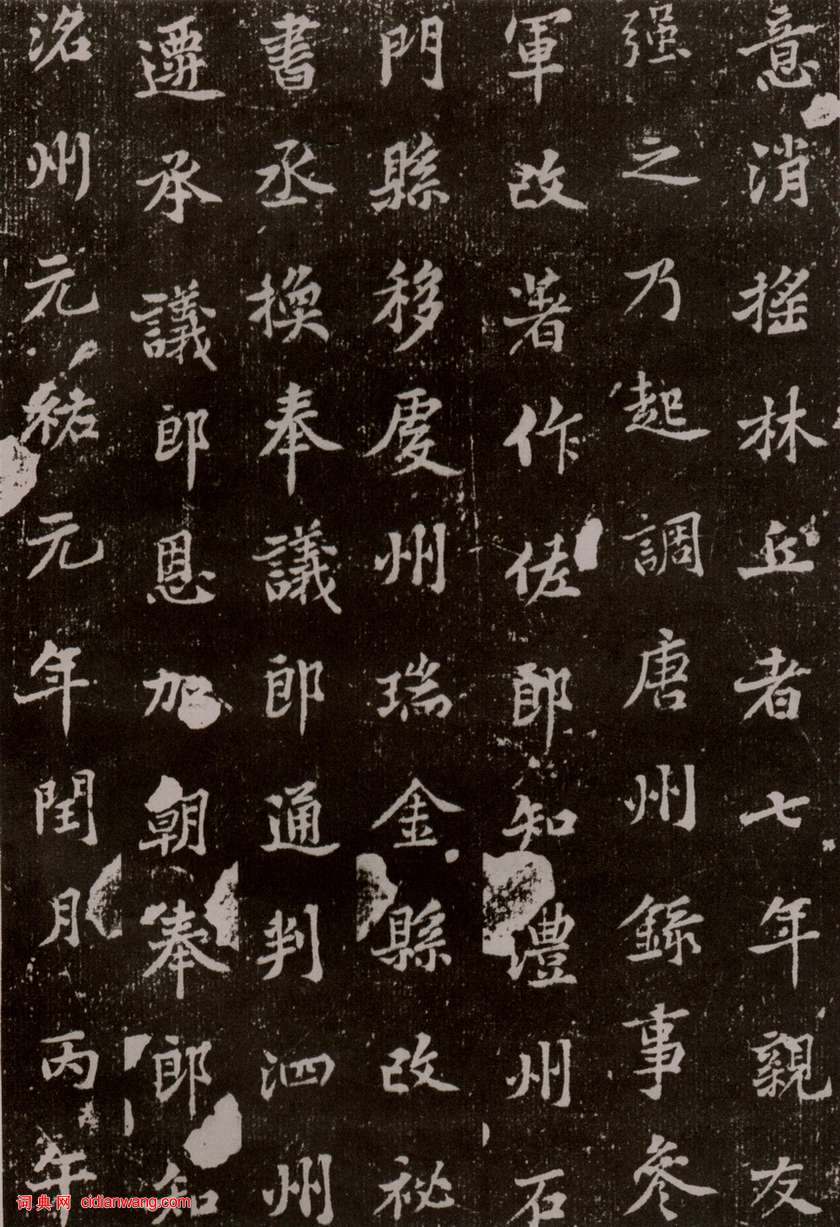 意消搖林丘者七年親友
强之乃起調唐州錄事參
軍改著作佐郎知澧州石
門縣移虔州瑞金縣改祕
書丞換奉議郎通判泗州
遷承議郎恩加朝奉郎知
洺州元祐元年閏月丙午
词典网 cidianwang.com